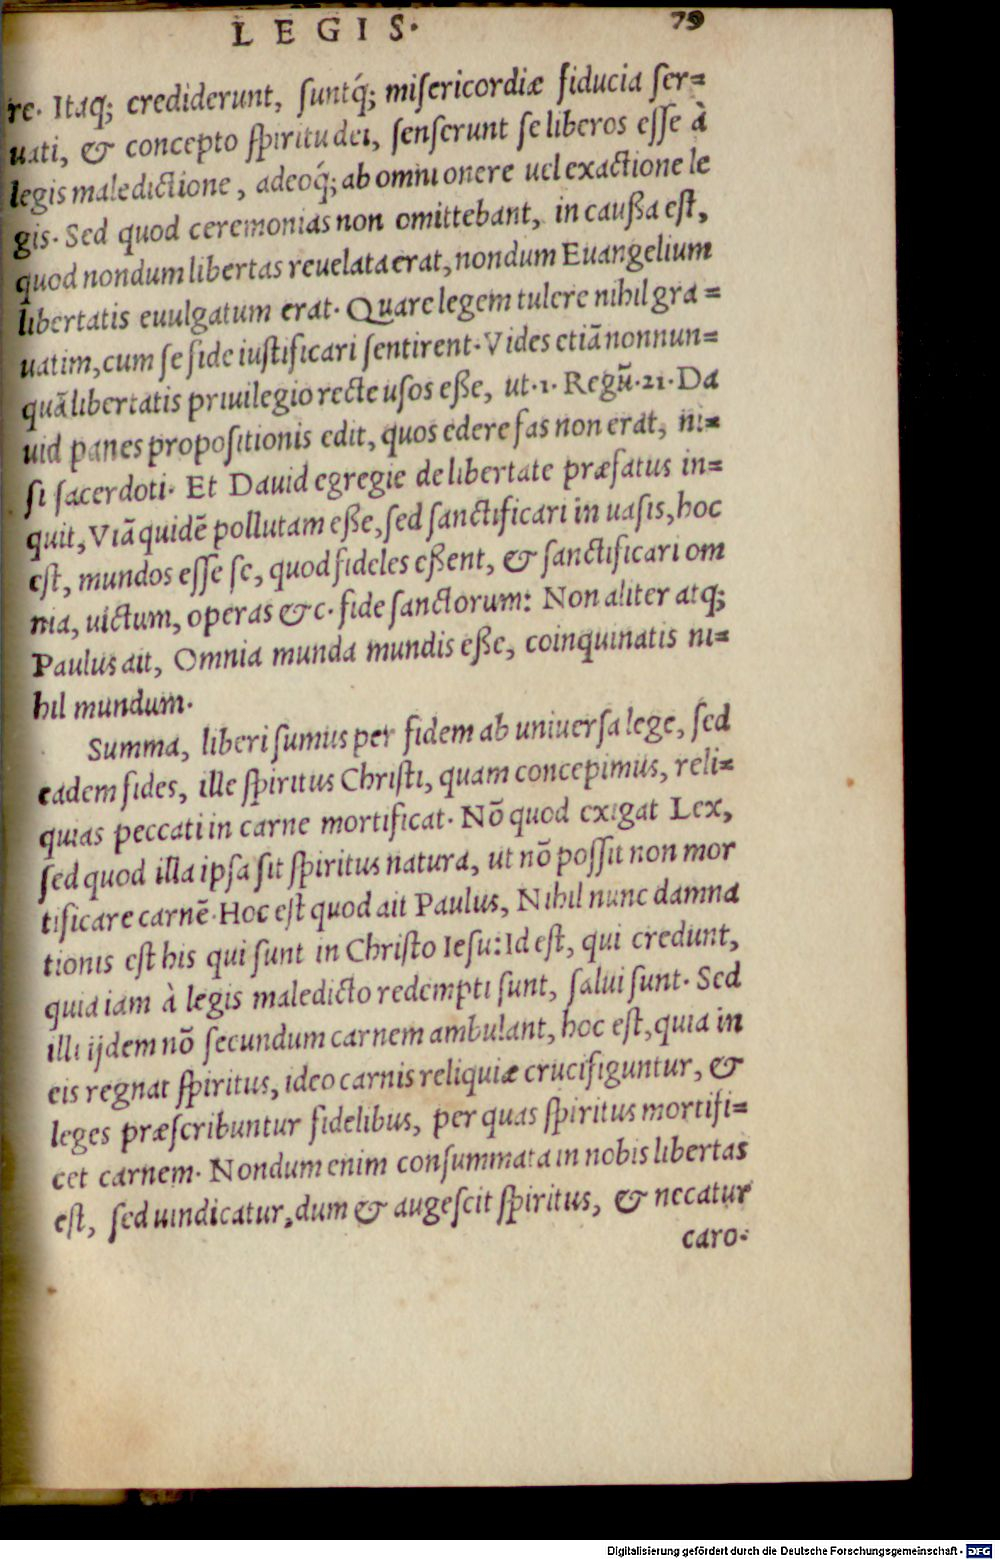 LEGIS. 79
re. Itaq; crediderunt, ſuntq́; miſericordiæ fiducia ſer=
uati, & concepto ſpiritu dei, ſenſerunt ſe liberos eſſe à
legis maledictione, adeoq́; ab omni onere uel exactione le
gis. Sed quod ceremonias non omittebant, in cauſſa eſt,
quod nondum libertas reuelata erat, nondum Euangelium
libertatis euulgatum erat. Quare legem tulere nihil gra=
uatim, cum ſe fide iuſtificari ſentirent. Vides etiã nonnun=
quã libertatis priuilegio recte uſos eſſe, ut .1. Regũ .21. Da
uid panes propoſitionis edit, quos edere fas non erat, ni=
ſi ſacerdoti. Et Dauid egregie de libertate præfatus in=
quit, Viã quidẽ pollutam eſſe, ſed ſanctificari in uaſis, hoc
eſt, mundos eſſe ſe, quod fideles eſſent, & ſanctificari om
nia, uictum, operas &c. fide ſanctorum: Non aliter atq;
Paulus ait, Omnia munda mundis eſſe, coinquinatis ni=
hil mundum.
Summa, liberi ſumus per fidem ab uniuerſa lege, ſed
eadem fides, ille ſpiritus Chriſti, quam concepimus, reli=
quias peccati in carne mortificat. Nõ quod exigat Lex,
ſed quod illa ipſa ſit ſpiritus natura, ut nõ poſſit non mor
tificare carnẽ. Hoc eſt quod ait Paulus, Nihil nunc damna
tionis eſt his qui ſunt in Chriſto Ieſu: Id eſt, qui credunt,
quia iam à legis maledicto redempti ſunt, ſalui ſunt. Sed
illi ijdem nõ ſecundum carnem ambulant, hoc eſt, quia in
eis regnat ſpiritus, ideo carnis reliquiæ crucifiguntur, &
leges præſcribuntur fidelibus, per quas ſpiritus mortifi=
cet carnem. Nondum enim conſummata in nobis libertas
eſt, ſed uindicatur, dum & augeſcit ſpiritus, & necatur
caro.
Digitalisierung gefördert durch die Deutsche Forschungsgemeinschaft - DFG